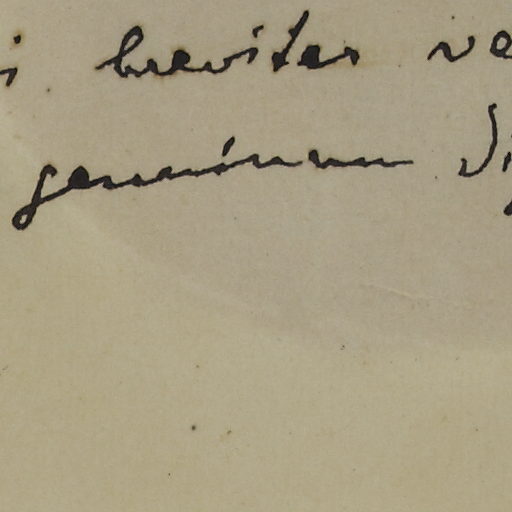 i breviter ve
genuinum Si